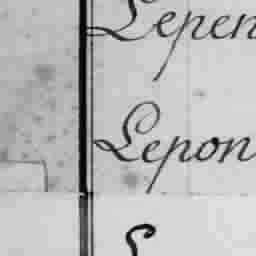 Lepen
Lepon
L